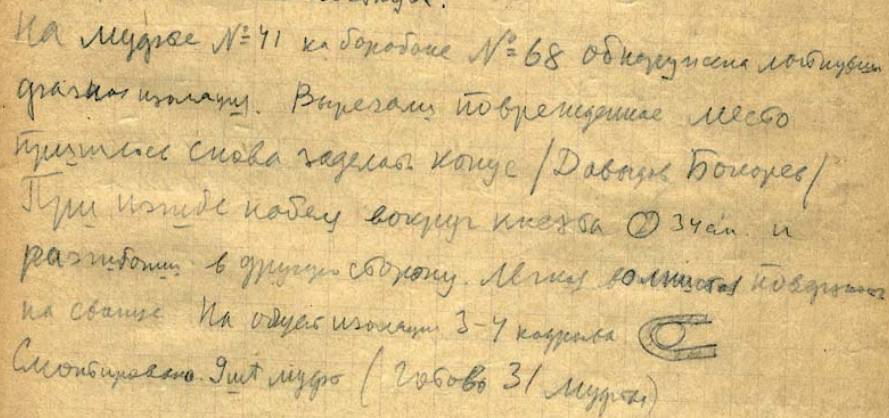 На муфте №41 на барабане №68 обнаружена лопнувши
фазная изоляция. Вырезали поврежденное место
пришлось снова заделать конус /Давыдов Бокорев/
При изгибе кабеля вокруг 34см. и
разгибании в другую сторону. Легкая волнистая поверхность
на свинце На общей изоляции 3-4
Смонтировано 9шт муфт (готово 31 муфта)